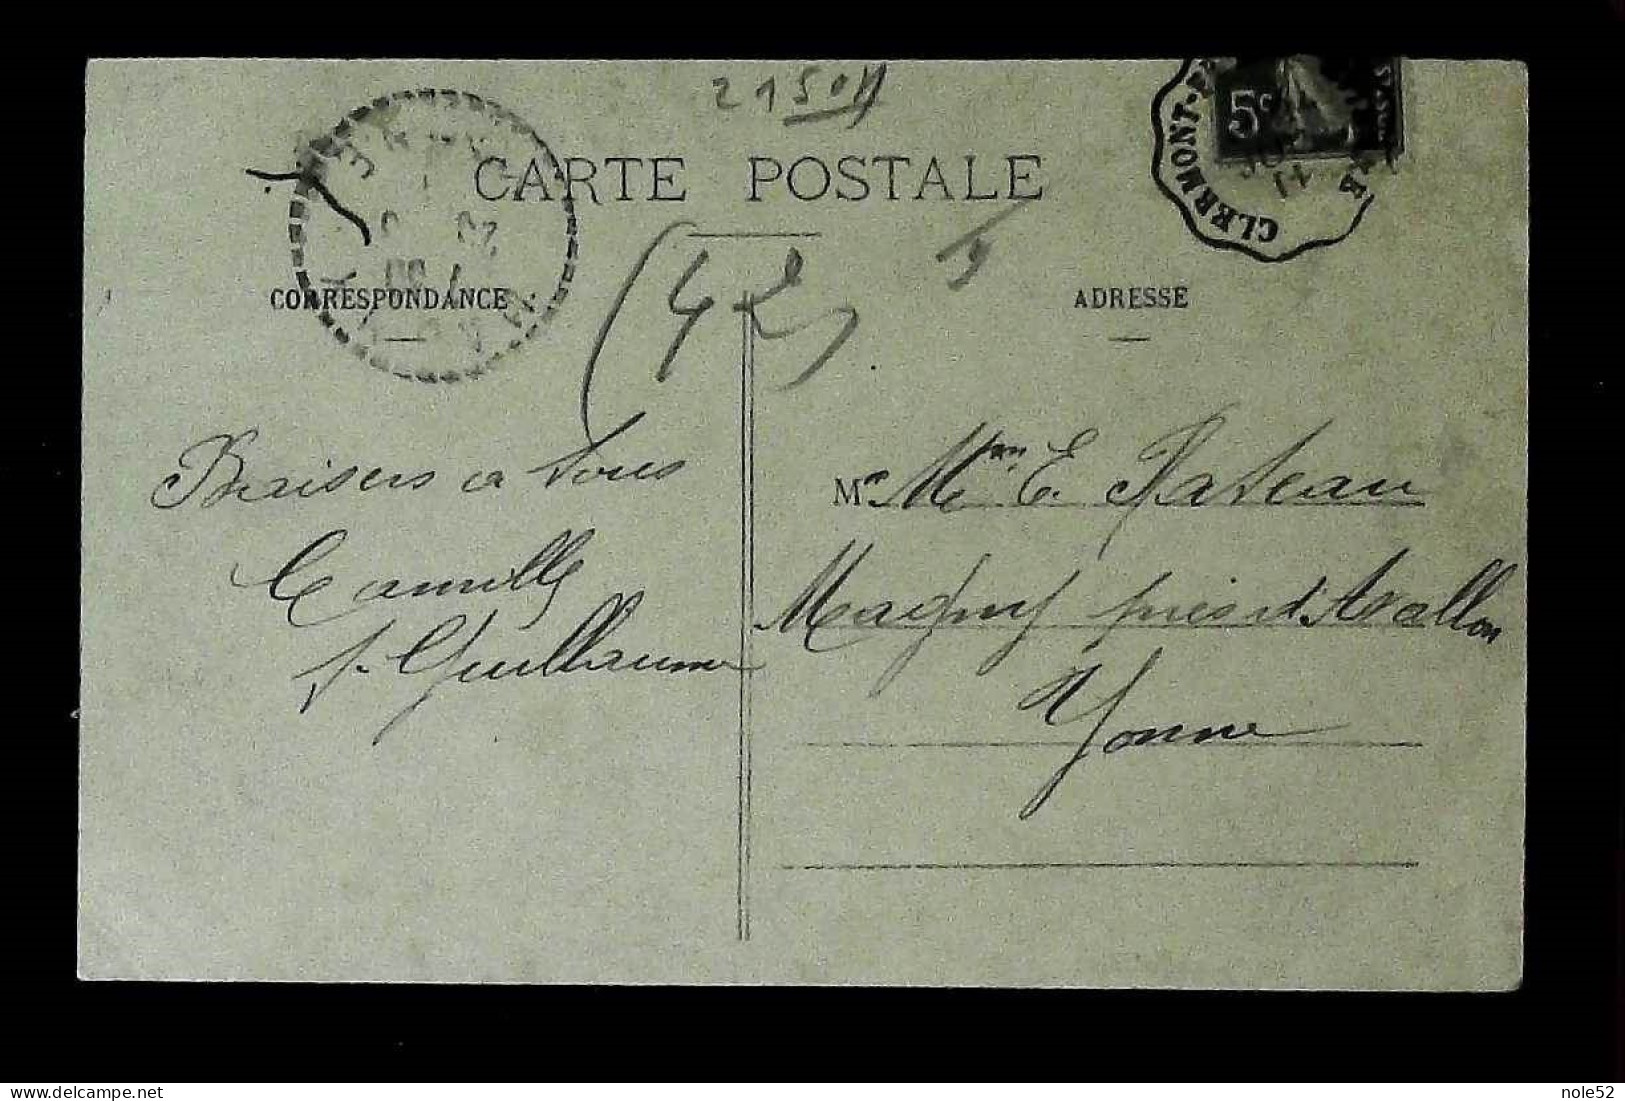 21 50
CARTE POSTALE
5c
CLERMONT
(42)
CORRESPONDANCE
ADRESSE
Baisers a tous
Camille
Guillaume
M Mme E. Rateau
Magny près d'Avallon
Yonne
nole52